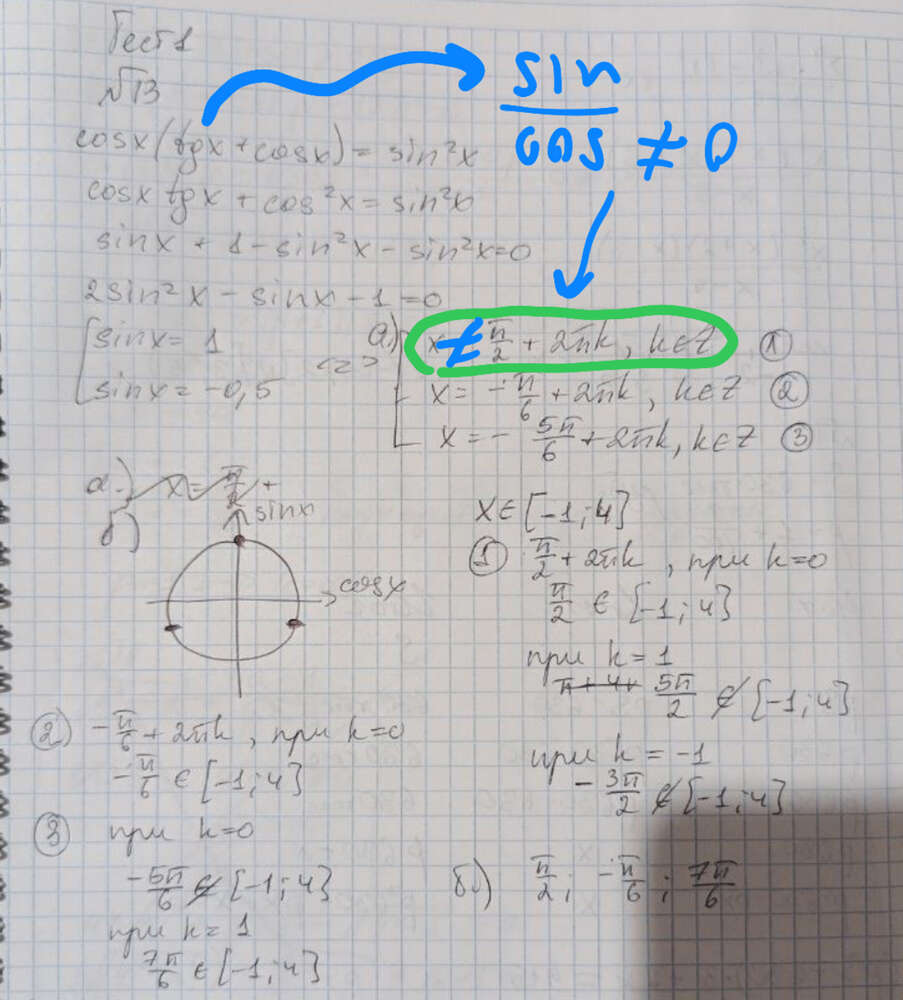 Тест 1
№13
sin
cos ≠ 0
cosx(tgx + cosx) = sin²x
cosx tgx + cos²x = sin²x
sinx + 1 - sin²x - sin²x = 0
2sin²x - sinx - 1 = 0
sinx = 1
sinx = -0,5
<=>
а.) x ≠ π/2 + 2πk, k∈Z ①
x = -π/6 + 2πk, k∈Z ②
x = - 5π/6 + 2πk, k∈Z ③
а.) x = π/2 +
б)
sinx
cosx
x∈[-1;4]
① π/2 + 2πk, при k=0
π/2 ∈ [-1;4]
при k = 1
5π/2 ∉ [-1;4]
при k = -1
- 3π/2 ∉ [-1;4]
② -π/6 + 2πk, при k=0
-π/6 ∈ [-1;4]
③ при k=0
-5π/6 ∉ [-1;4]
при k = 1
7π/6 ∈ [-1;4]
б.) π/2; -π/6; 7π/6